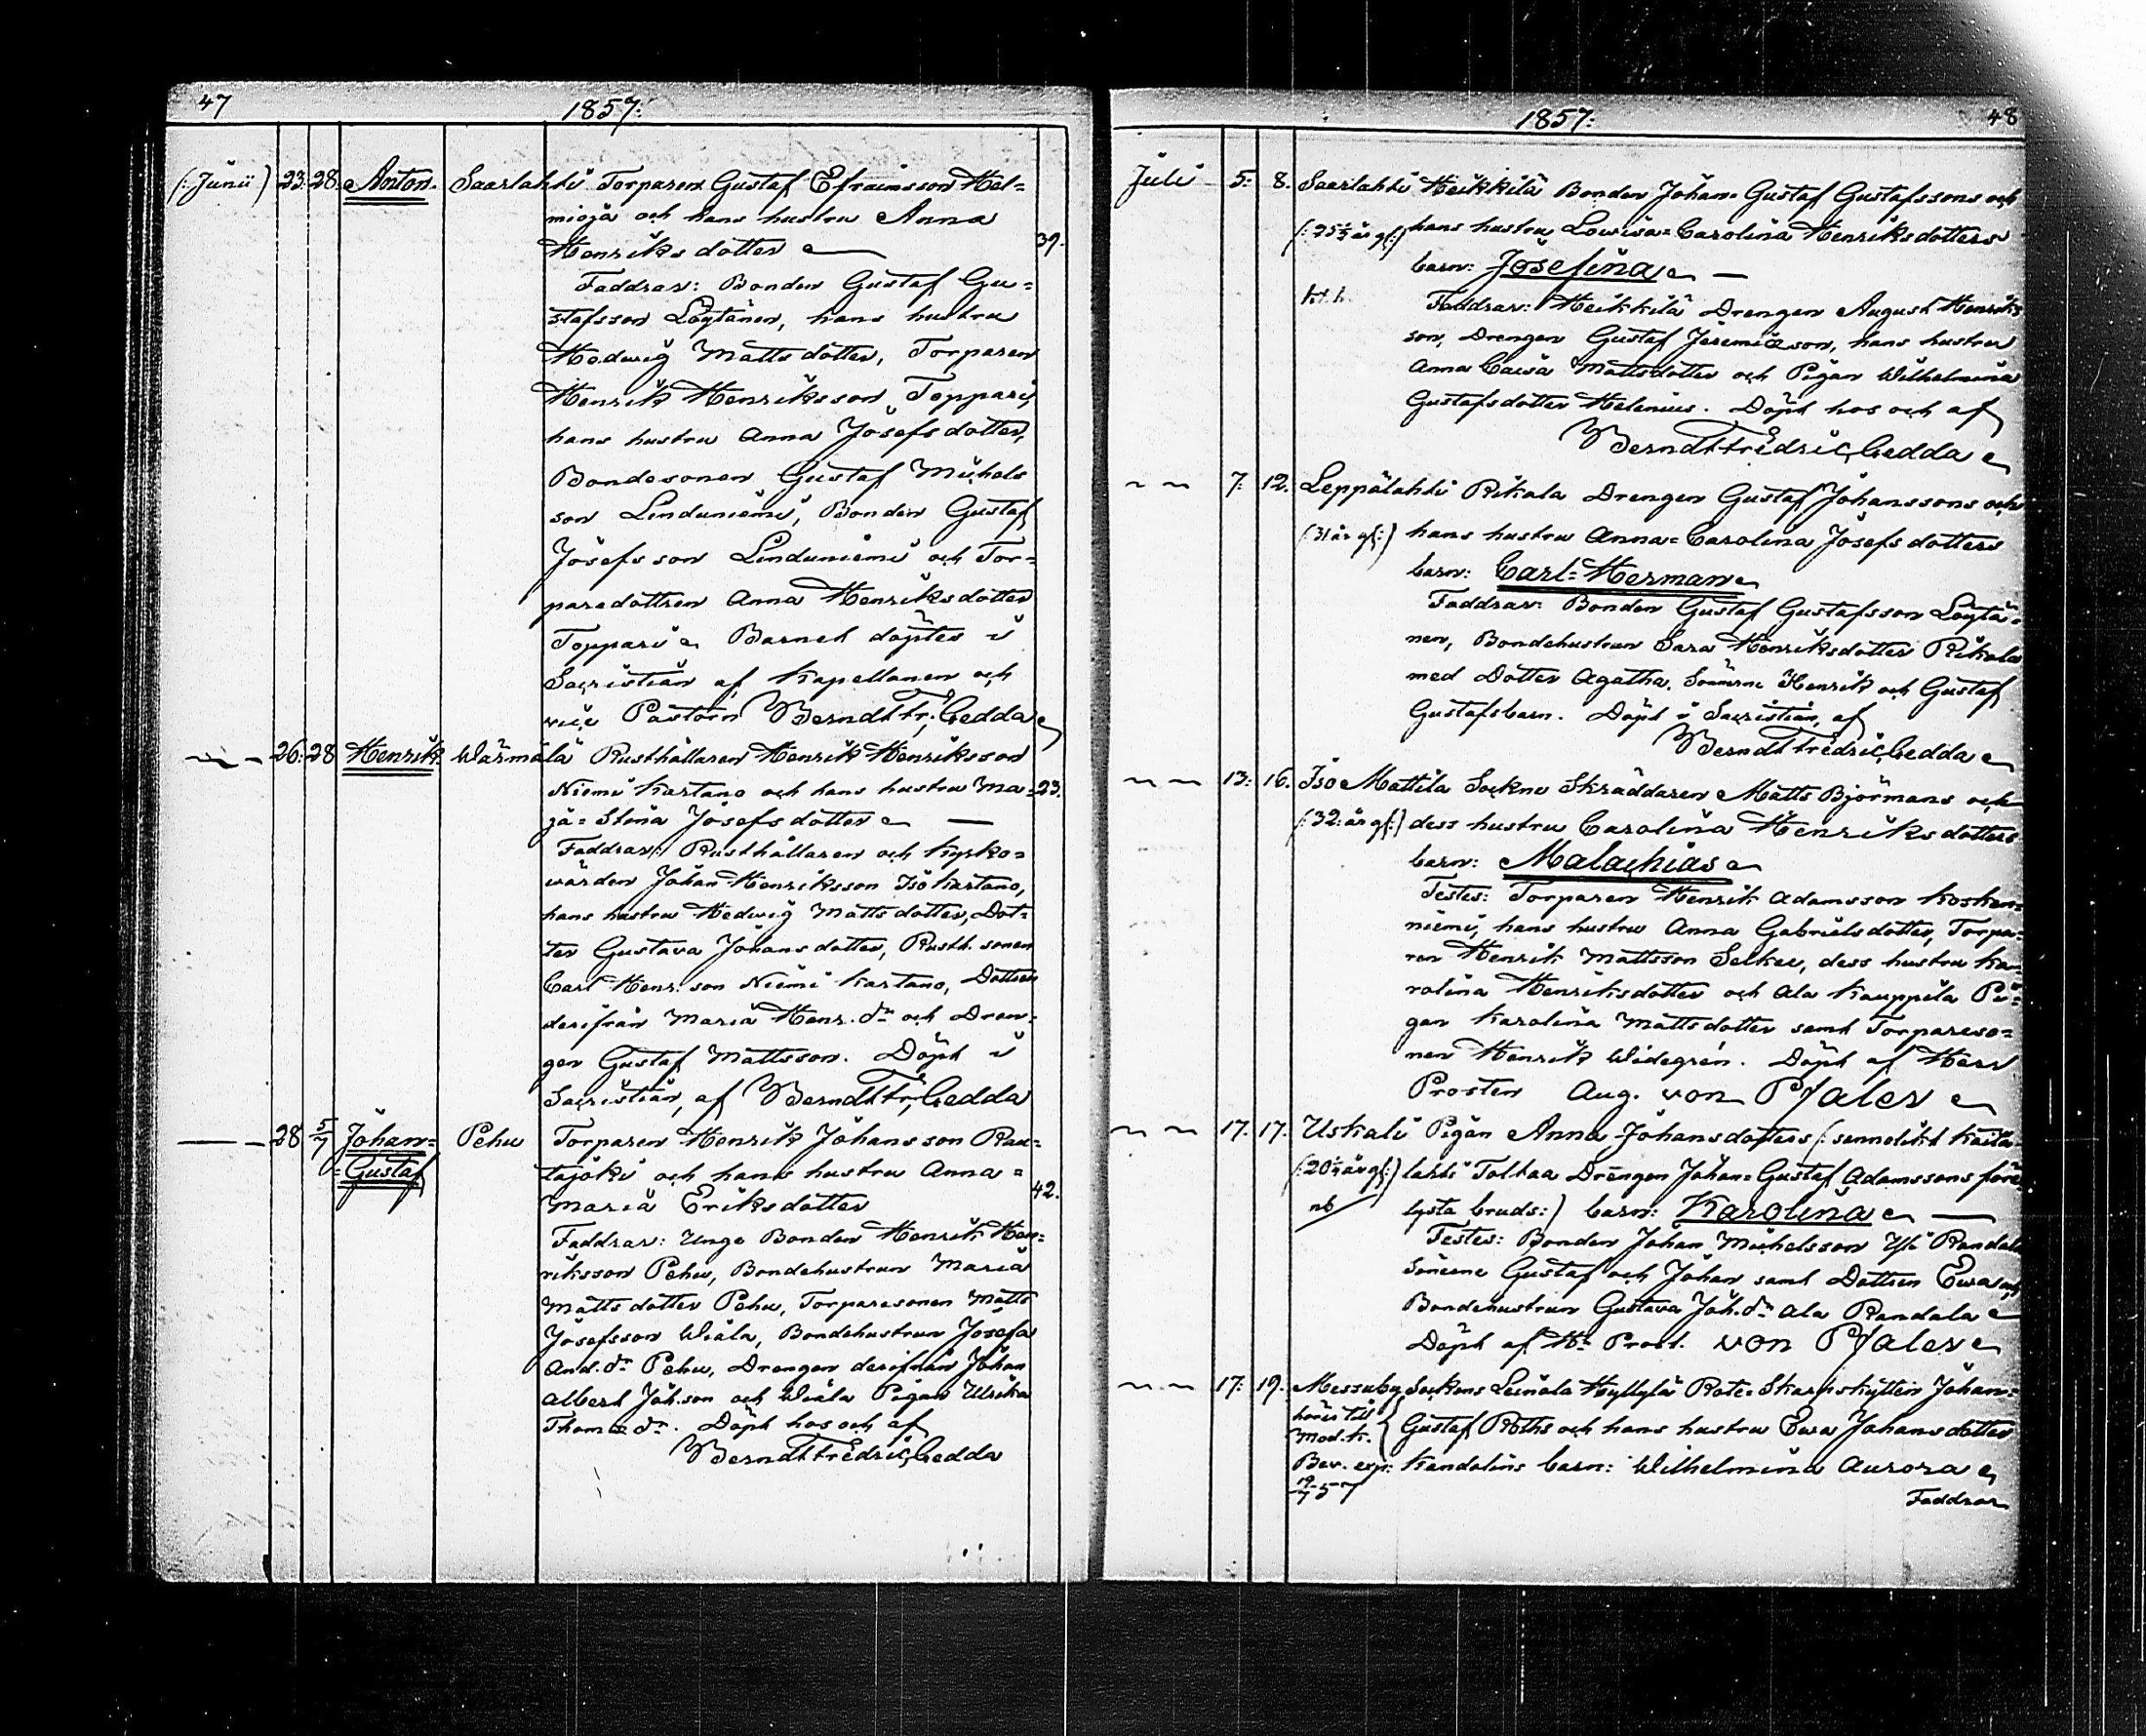 47
1857:
(: Junii) 23. 28. Anton. Saarlahti Torparen Gustaf Efraimsson Hel=
mioja och hans hustru Anna
Henriksdotter 39.
Faddrar: Bonden Gustaf Gu=
stafsson Löytänen, hans hustru
Hedwig Mattsdotter, Torparen
Henrik Henriksson Toppari,
hans hustru Anna Josefsdotter,
Bondesonen Gustaf Michels
son Linduniemi, Bonden Gustaf
Josefsson Linduniemi och Tor=
paredottren Anna Henriksdotter
Toppari. Barnet döptes i
Sacristian af Kapellanen och
vice Pastorn Berndt Fr. Cedda
26. 28 Henrik Wärmälä Rusthållaren Henrik Henriksson
Niemi Kartano och hans hustru Ma= 23.
ja=Stina Josefsdotter
Faddrar: Rusthållaren och Kyrko=
wärden Johan Henriksson Iso Kartano,
hans hustru Hedwig Mattsdotter, Dot=
ter Gustava Johansdotter, Rusth. sonen
Carl Henr. son Niemi Kartano, Dottren
derifrån Maria Henr. dr och Dren=
gen Gustaf Mattsson. Döpt i
Sacristian, af Berndt Fr. Cedda
28 5/7 Johan= Pehu Torparen Henrik Johansson Rau=
=Gustaf tajoki och hans hustru Anna=
Maria Eriksdotter 42.
Faddrar: Unge Bonden Henrik Hen=
riksson Pehu, Bondehustrun Maria
Mattsdotter Pehu, Torparesonen Matts
Josefsson Wiala, Bondehustrun Josefa
And. dr Pehu, Drengen derifrån Johan
Albert Joh.son och Wiala Pigan Ulrika
Thomæ dr. Döpt hos och af
Berndt Fredric Cedda
1857:
48
Juli 5. 8. Saarlahti Heikkilä Bonden Johan=Gustaf Gustafssons och
hans hustru Lowisa=Carolina Henriksdotters
barn: Josefina
Faddrar: Heikkilä Drengen August Henriks
son, Drengen Gustaf Jeremiæson, hans hustru
Anna Caisa Mattsdotter och Pigan Wilhelmina
Gustafsdotter Helenius. Döpt hos och af
Berndt Fredric Cedda
7. 12. Leppälahti Rikala Drengen Gustaf Johanssons och
(: 31 år gl:) hans hustru Anna=Carolina Josefsdotters
barn: Carl=Herman
Faddrar: Bonden Gustaf Gustafsson Löytä=
nen, Bondehustrun Sara Henriksdotter Rikala
med Dotter Agatha, Sönerne Henrik och Gustaf
Gustafsbarn. Döpt i Sacristian, af
Berndt Fredric Cedda
13: 16. Iso Mattila Sockne Skräddaren Matts Björmans och
(: 32: år gl:) dess hustru Carolina Henriksdotters
barn: Malachias
Testes: Torparen Henrik Adamsson Kosken=
niemi, hans hustru Anna Gabrielsdotter, Torpa=
ren Henrik Mattsson Selkee, dess hustru Ka=
rolina Henriksdotter och Ala Kauppila Pi=
gan Karolina Mattsdotter samt Torpareso=
nen Henrik Widegrén. Döpt af Herr
Prosten Aug. von Pfaler
17. 17. Uskali Pigan Anna Johansdotters (: sannolikt Kaita=
(: 20 1/4 år gl:) lahti Tolkaa Drengen Johan=Gustaf Adamssons före=
nb lysta bruds:) barn: Karolina
Testes: Bonden Johan Michelsson Yli Randala
Sönerne Gustaf och Johan samt Dottren Ewa och
Bondehustrun Gustava Joh. dr Ala Randala
Döpt af Hr Prost. von Pfaler
17: 19. Messuby Sockens Leinola Hyllylä Rote=Skarpskytten Johan=
hörer till Gustaf Roths och hans hustru Ewa Johansdotter
Mod. k.
Bev. exp: Kandolins barn: Wilhelmina Aurora
19/7 57
Faddrar